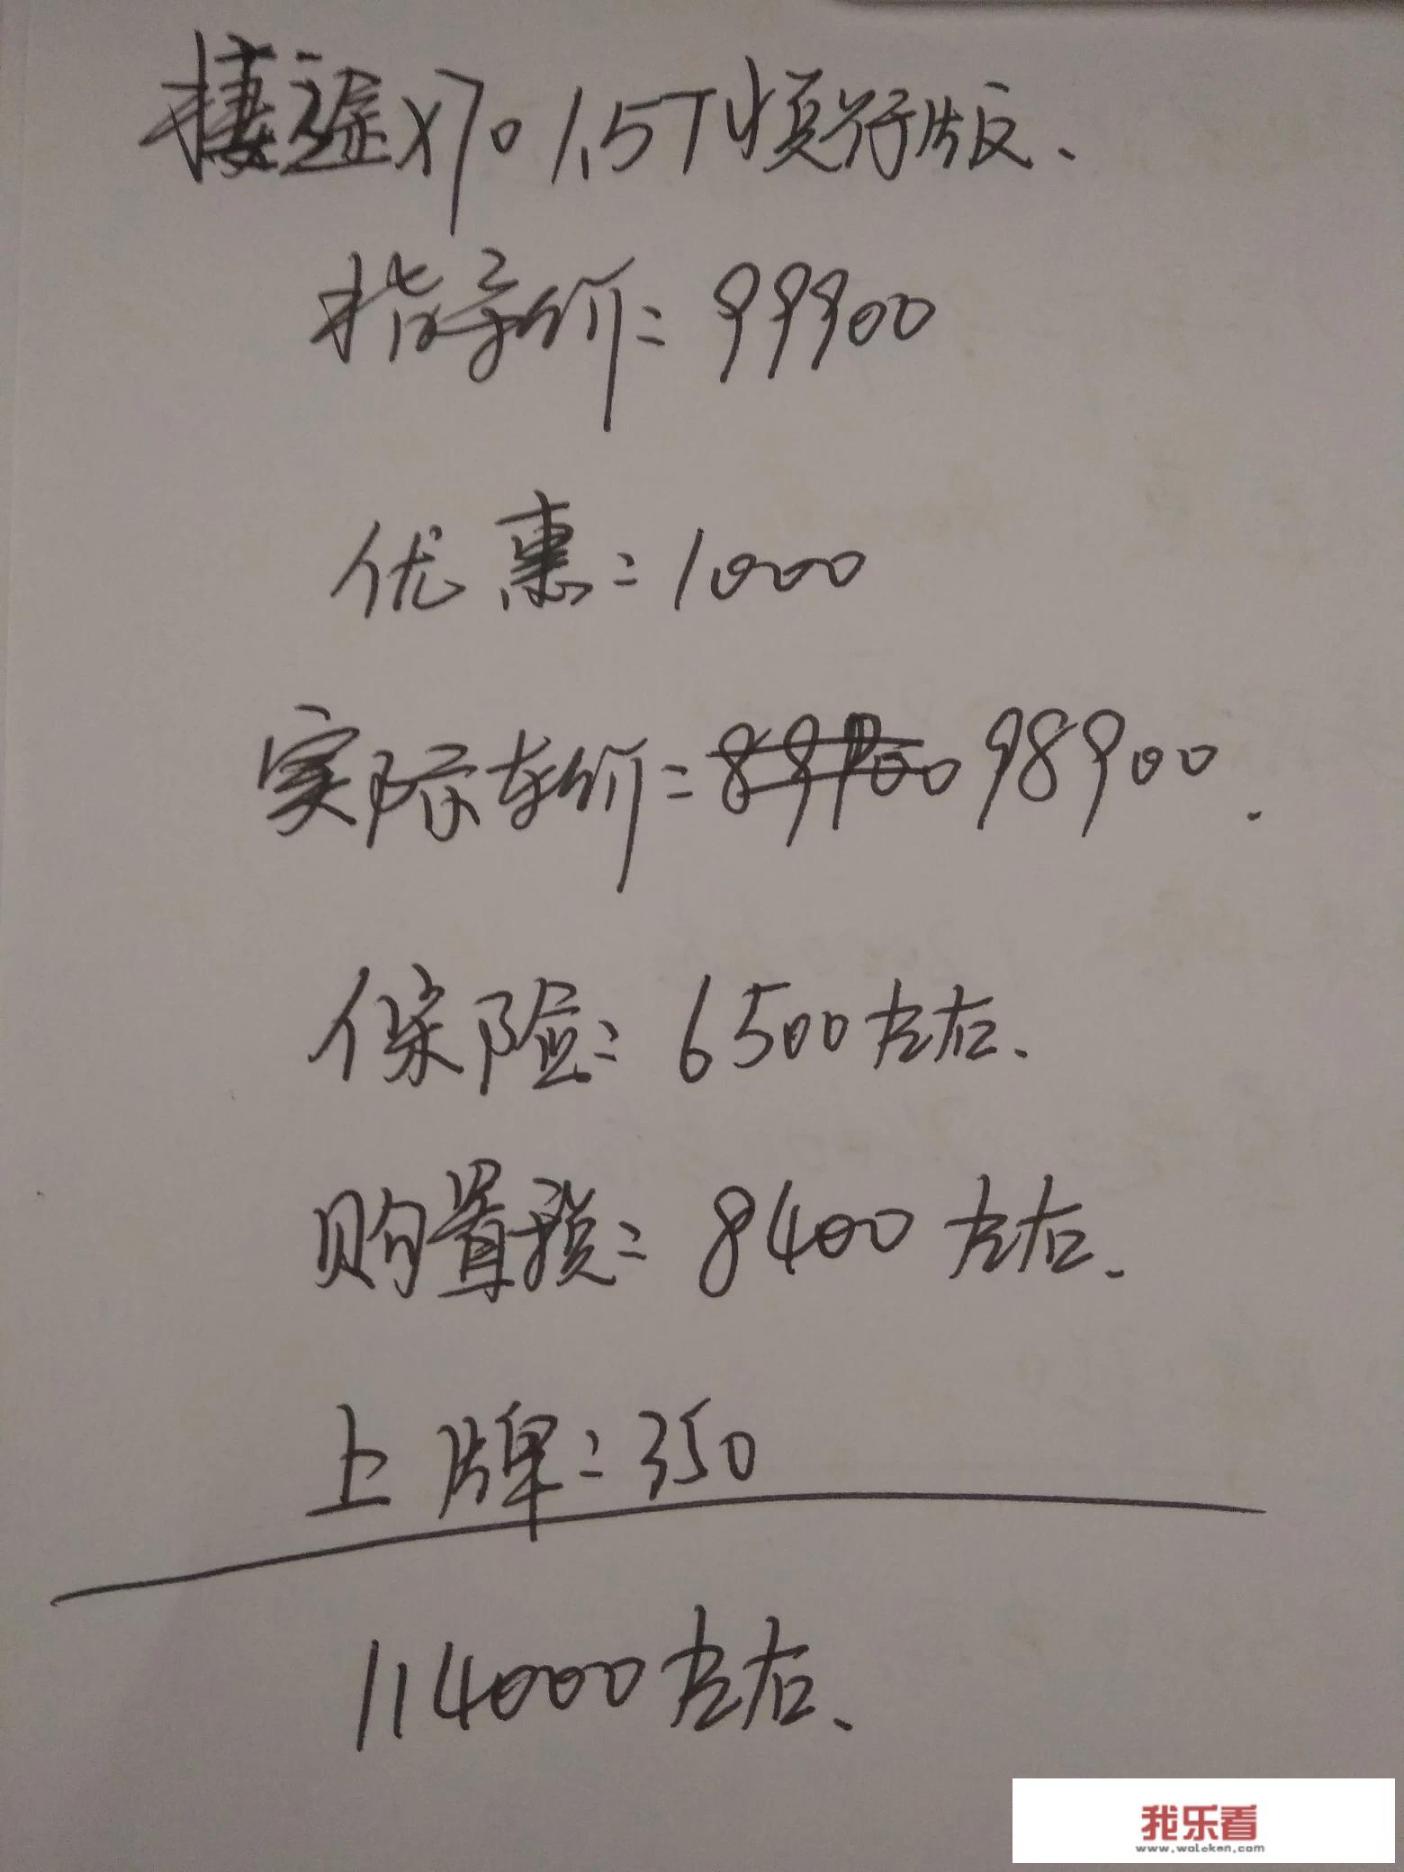 捷途X70 1.5T 惬行版、
指导价=99900
优惠=1000
实际车价=89900 98900.
保险=6500左右.
购置税=8400左右.
上牌=350
114000左右、
我乐看
www.woleken.com